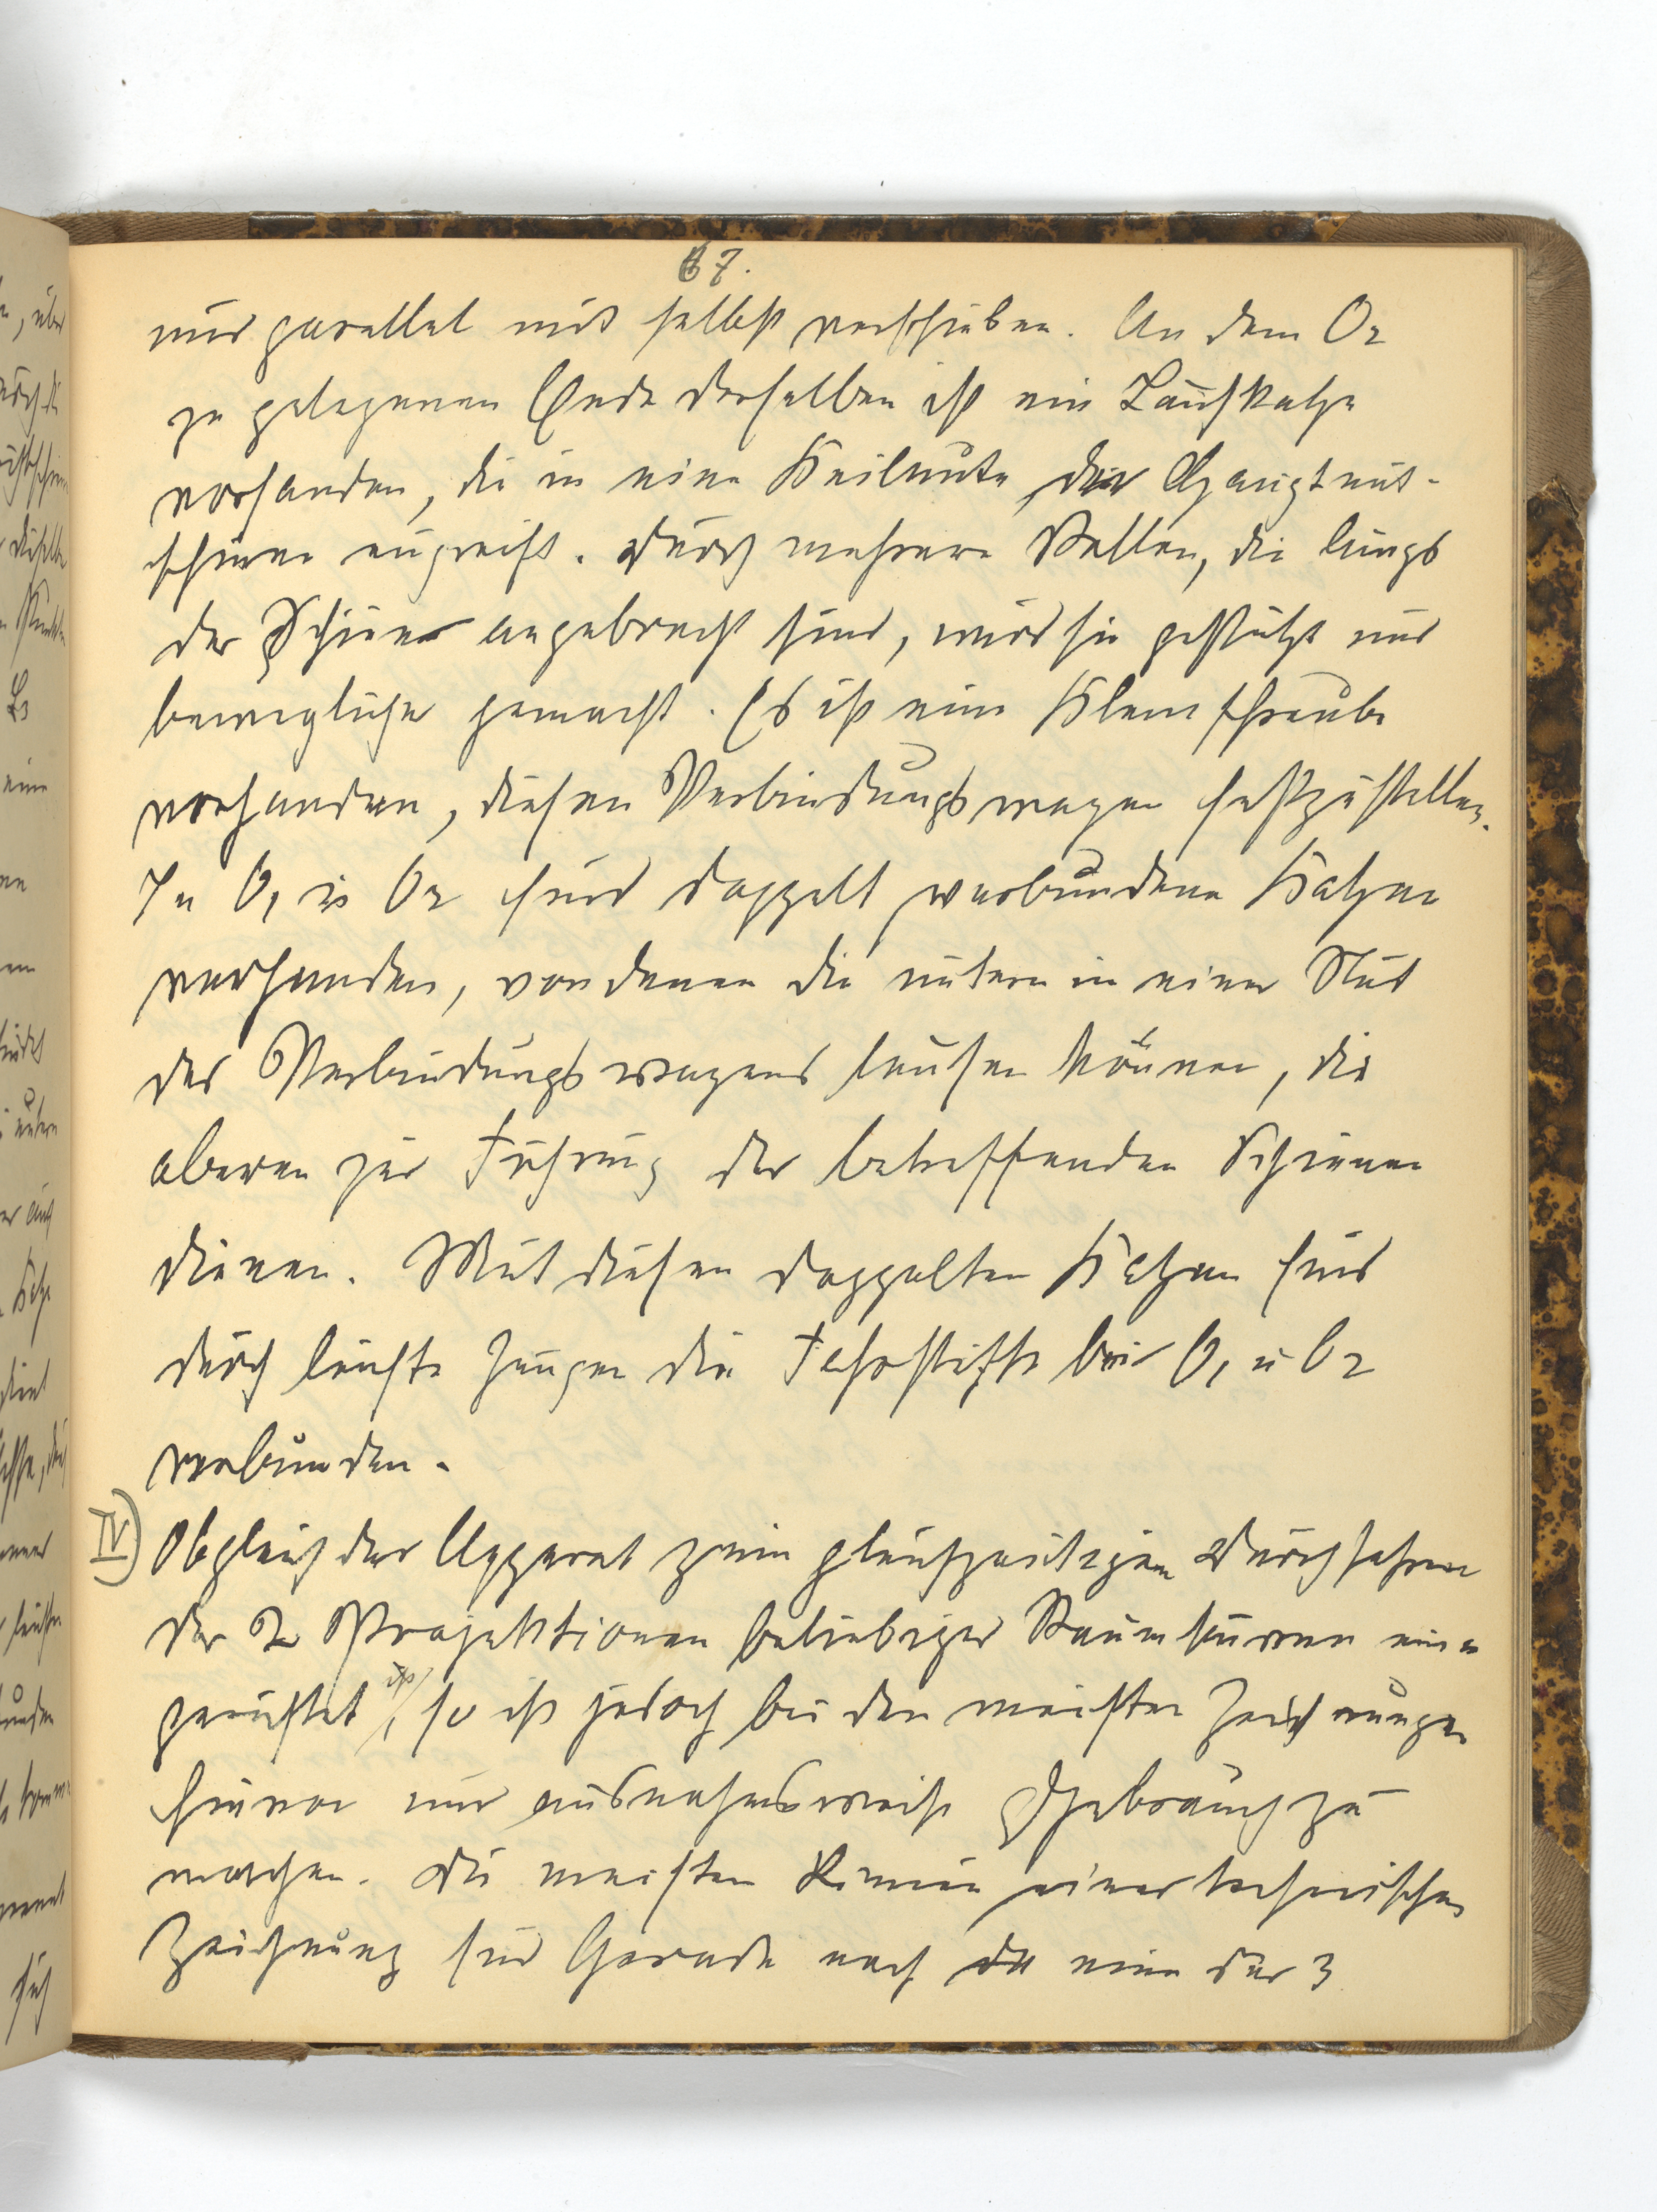 67.
nur parallel mit selbst verschieben. An dem O2
zu gelegenen Ende derselben ist ein Laufkatze
vorhanden, die in eine Keilnute der Hauptnut-
schiene eingreift. Durch mehrere Rollen, die längs
der Schiene angebracht sind, wird sie gestützt und
beweglicher gemacht. Es ist eine Klemschraube
vorhanden, diesen Verbindungswagen festzustellen.
In O1 u O2 sind doppelt verbundene Katzen
vorhanden, von denen die untern in einer Nut
des Verbindungswagens laufen können, die
oberen zur Führung der betreffenden Schienen
dienen. Mit diesen doppelten Katzen sind
durch leichte Zungen die Fahrstifte bei O1 u O2
verbunden.
IV) Obgleich der Apparat zum gleichzeitigen Durchfahren
der 2 Projektionen beliebiger Raumkurven ein
gerichtet ist, so ist jedoch bei den meisten Zeichnungen
hievon nur ausnahmsweise Gebrauch zu
machen. Die meisten Linien einer technischen
Zeichnung sind Gerade nach eine der 3